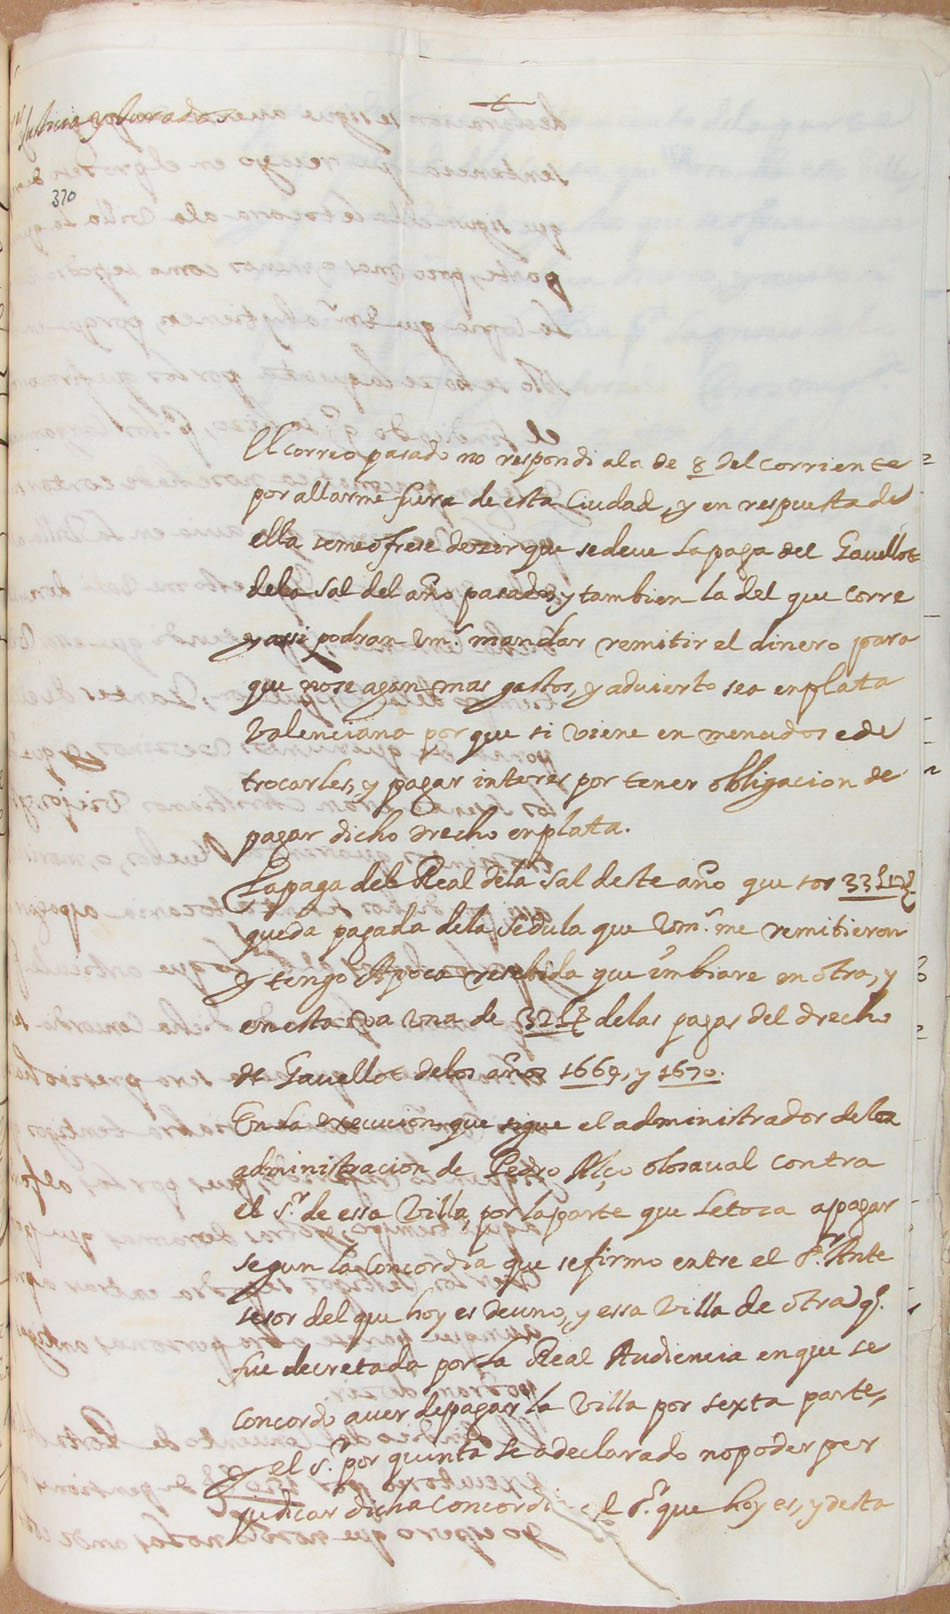 Justicia y Jurados
370
El Correo pasado no respondi ala de 8 del corriente
por allarme fuera de esta Ciudad, y en respuesta de
ella seme ofrese dezir que sedeve La paga del Gavellot
dela Sal del año pasado, y tambien la del que corre
y assi podran Vm.s mandar remitir el dinero para
que nose agan mas gastos, y advierto sea en plata
Valenciana por que si viene en menudos e de
trocarles, y pagar interes por tener obligacion de
pagar dicho drecho en plata.
La paga del Real dela Sal deste año que son
queda pagada dela Sedula que Vm.s me remitieron
y tengo Apoca resebida que imbiare en otra, y
en esta va una de 32 L 8 delas pagas del drecho
de Gavellot delos años 1669, y 1670.
En la execucion que sigue el administrador dela
administracion de Pedro contra
el S.r de essa Villa, por la parte que Le toca a pagar
segun la Concordia que se firmo entre el S.r Ante
sesor del que hoy es de uno, y essa Villa de otra q.
fue decretada por la Real Audiencia en que se
concordo aver de pagar la Villa por sexta parte,
y el S.r por quinta se a declarado no poder per
judicar dicha Concordia el S.r que hoy es, y desta